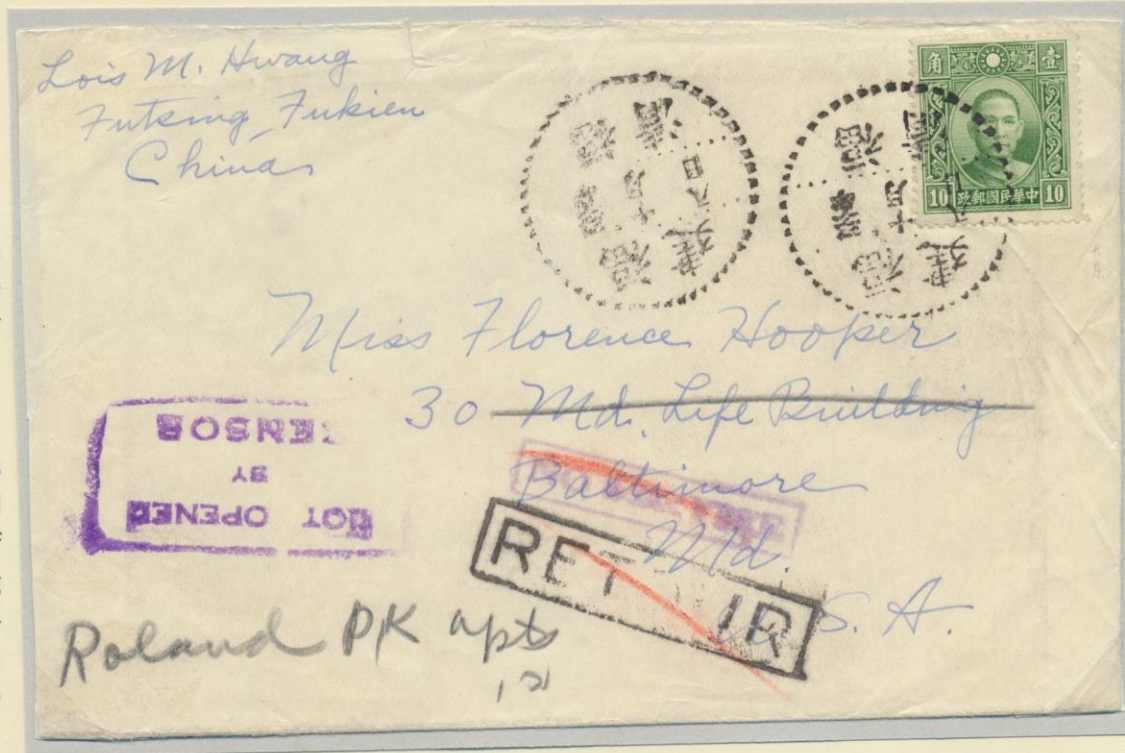 Lois M. Hwang
Futsing, Fukien
China
角 壹
10 中華民國郵政 10
福清
十月
八日
福建
福清
十月
八
福建
Miss Florence Hooper
30 Md. Life Building
Baltimore
Md.
S. A.
NOT OPENED
BY
CENSOR
RETOUR
Roland PK apts